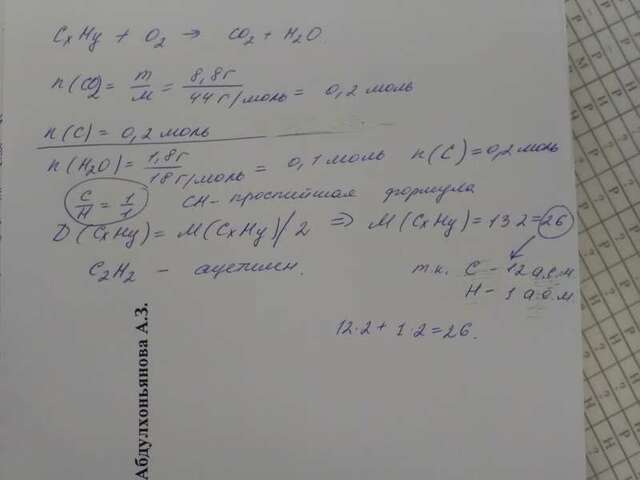 CxHy + O2 → CO2 + H2O.
n(CO2) = m/M = 8,8г/44г/моль = 0,2 моль
n(C) = 0,2 моль
n(H2O) = 1,8г/18г/моль = 0,1 моль n(C) = 0,2 моль
C/H = 1/1 CH - простейшая формула
D(CxHy) = M(CxHy)/2 ⇒ M(CxHy) = 13·2 = 26
C2H2 - ацетилен. т.к. C - 12 а.е.м
H - 1 а.е.м
12·2 + 1·2 = 26.
Абдулхоньянова А.З.